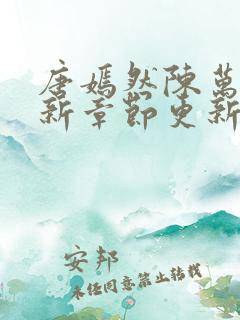 唐嫣然陳萬
新章節更新
安邦
未經同意禁止轉載